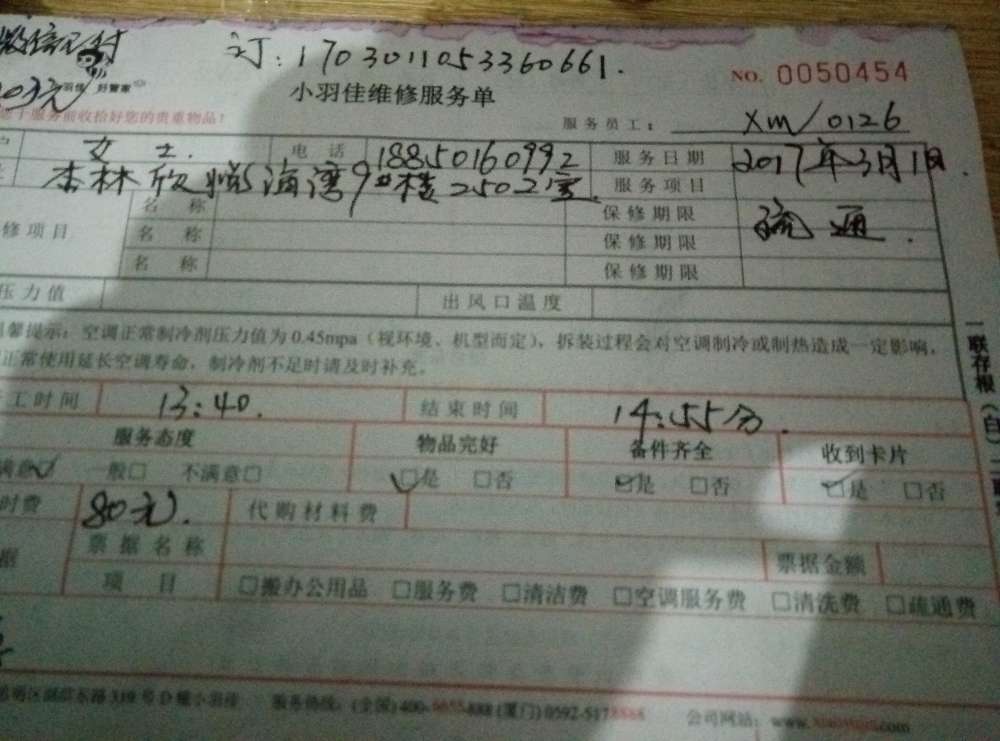 微信已付
订：1703011053360661.
203元 羽佳 好管家
NO. 0050454
小羽佳维修服务单
于服务前收拾好您的贵重物品！
服务员工： XM/0126
女士. 电话 18850160992 服务日期 2017年3月1日.
杏林欣悦海湾9#楼2502室. 服务项目
名称 保修期限 疏通.
修项目 名称 保修期限
名称 保修期限
压力值 出风口温度
馨提示：空调正常制冷剂压力值为0.45mpa（视环境、机型而定），拆装过程会对空调制冷或制热造成一定影响，
正常使用延长空调寿命，制冷剂不足时请及时补充。
工时间 13:40. 结束时间 14:55分.
服务态度 物品完好 备件齐全 收到卡片
满意✓ 一般□ 不满意□ ☑是 □否 ☑是 □否 ☑是 □否
时费 80元. 代购材料费
据 票据名称 票据金额
项目 □搬办公用品 □服务费 □清洁费 □空调服务费 □清洗费 □疏通费
服务热线：(全国)400-6655-888 (厦门)0592-5178888 公司网站：www.
一联存根（白）二联